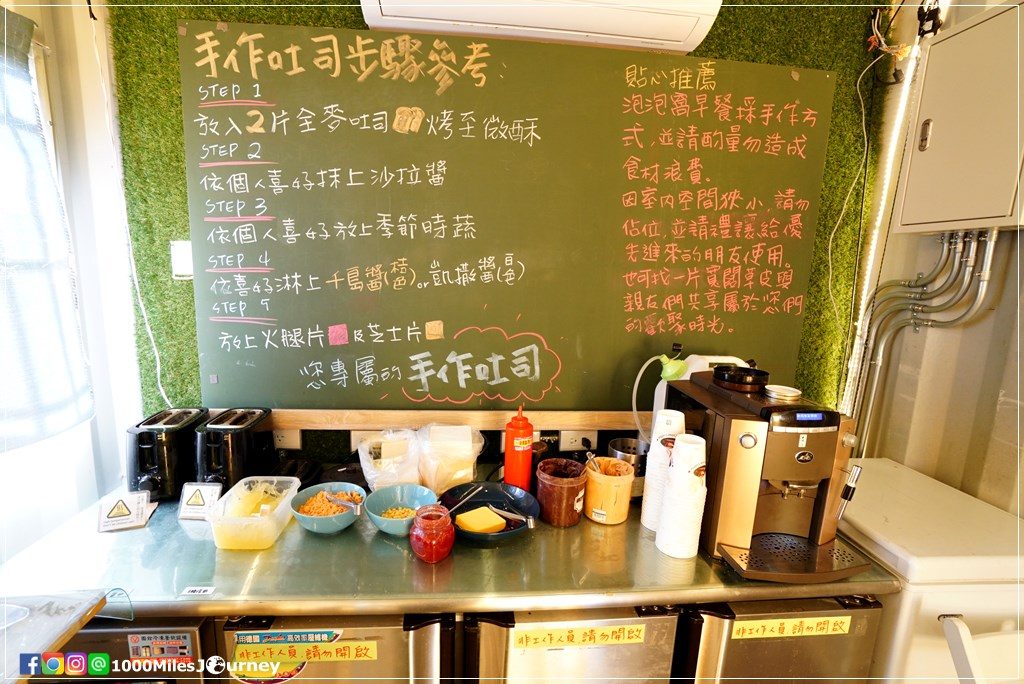 手作吐司步驟參考:
STEP 1
放入2片全麥吐司 烤至微酥
STEP 2
依個人喜好抹上沙拉醬
STEP 3
依個人喜好放上季節時蔬
STEP 4
依喜好淋上千島醬(橘色)or凱撒醬(白色)
STEP 5
放上火腿片 及芝士片
您專屬的 手作吐司
貼心推薦
泡泡窩早餐採手作方
式,並請酌量勿造成
食材浪費。
因室內空間狹小,請勿
佔位,並請禮讓給優
先進來的朋友使用。
也可找一片寬闊草皮與
親友們共享屬於您們
的歡聚時光。
用德國 高效率壓縮機
非工作人員,請勿開啟
非工作人員,請勿開啟
非工作人員,請勿開啟
1000MilesJourney